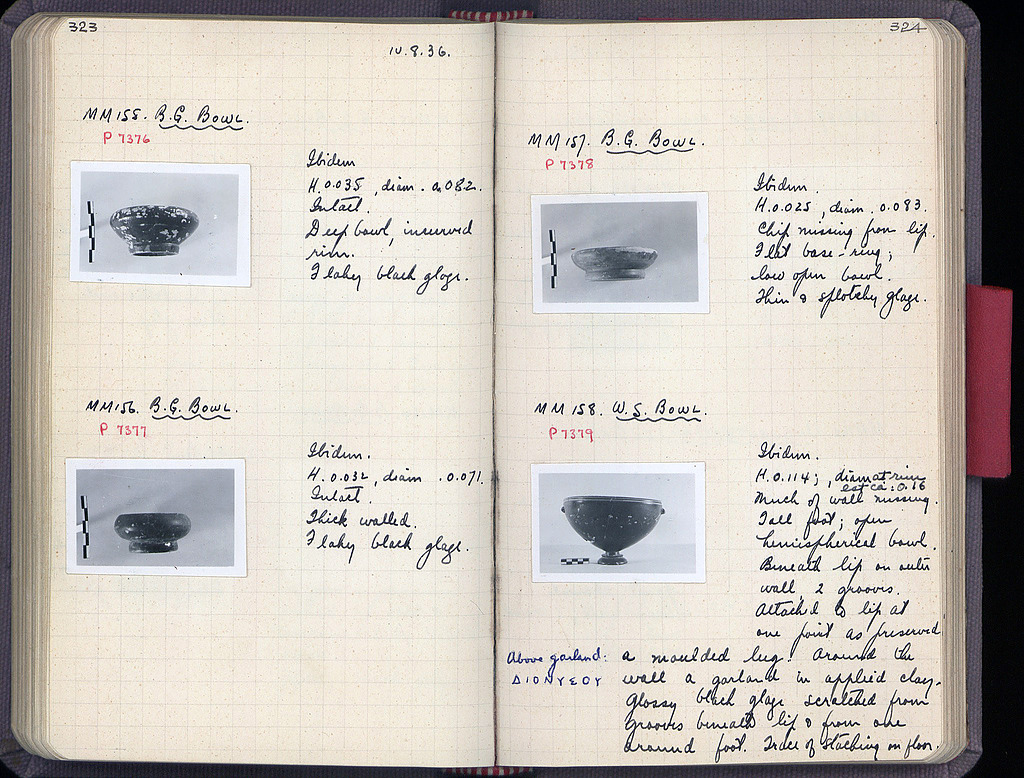 323
10.8.36.
MM155. B.G. BOWL.
P 7376
Ibidem
H. 0.035, diam. 0.082.
Intact.
Deep bowl, incurved
rim.
Flaky black glaze.
MM156. B.G. BOWL.
P 7377
Ibidem.
H. 0.032, diam. 0.071.
Intact.
Thick walled.
Flaky black glaze.
324
MM157. B.G. BOWL.
P 7378
Ibidem.
H. 0.025, diam. 0.083.
Chip missing from lip.
Flat base-ring;
low open bowl.
Thin & splotchy glaze.
MM 158. W.S. BOWL.
P 7379
Ibidem.
H. 0.114; diam at rim
est ca. 0.16
Much of wall missing.
Tall foot; open
hemispherical bowl.
Beneath lip on outer
wall, 2 grooves.
Attached to lip at
one point as preserved
a moulded lug. Around the
wall a garland in applied clay.
Glossy black glaze scratched from
grooves beneath lip & from one
around foot. Trace of stacking on floor.
Above garland:
ΔΙΟΝΥΣΟΥ